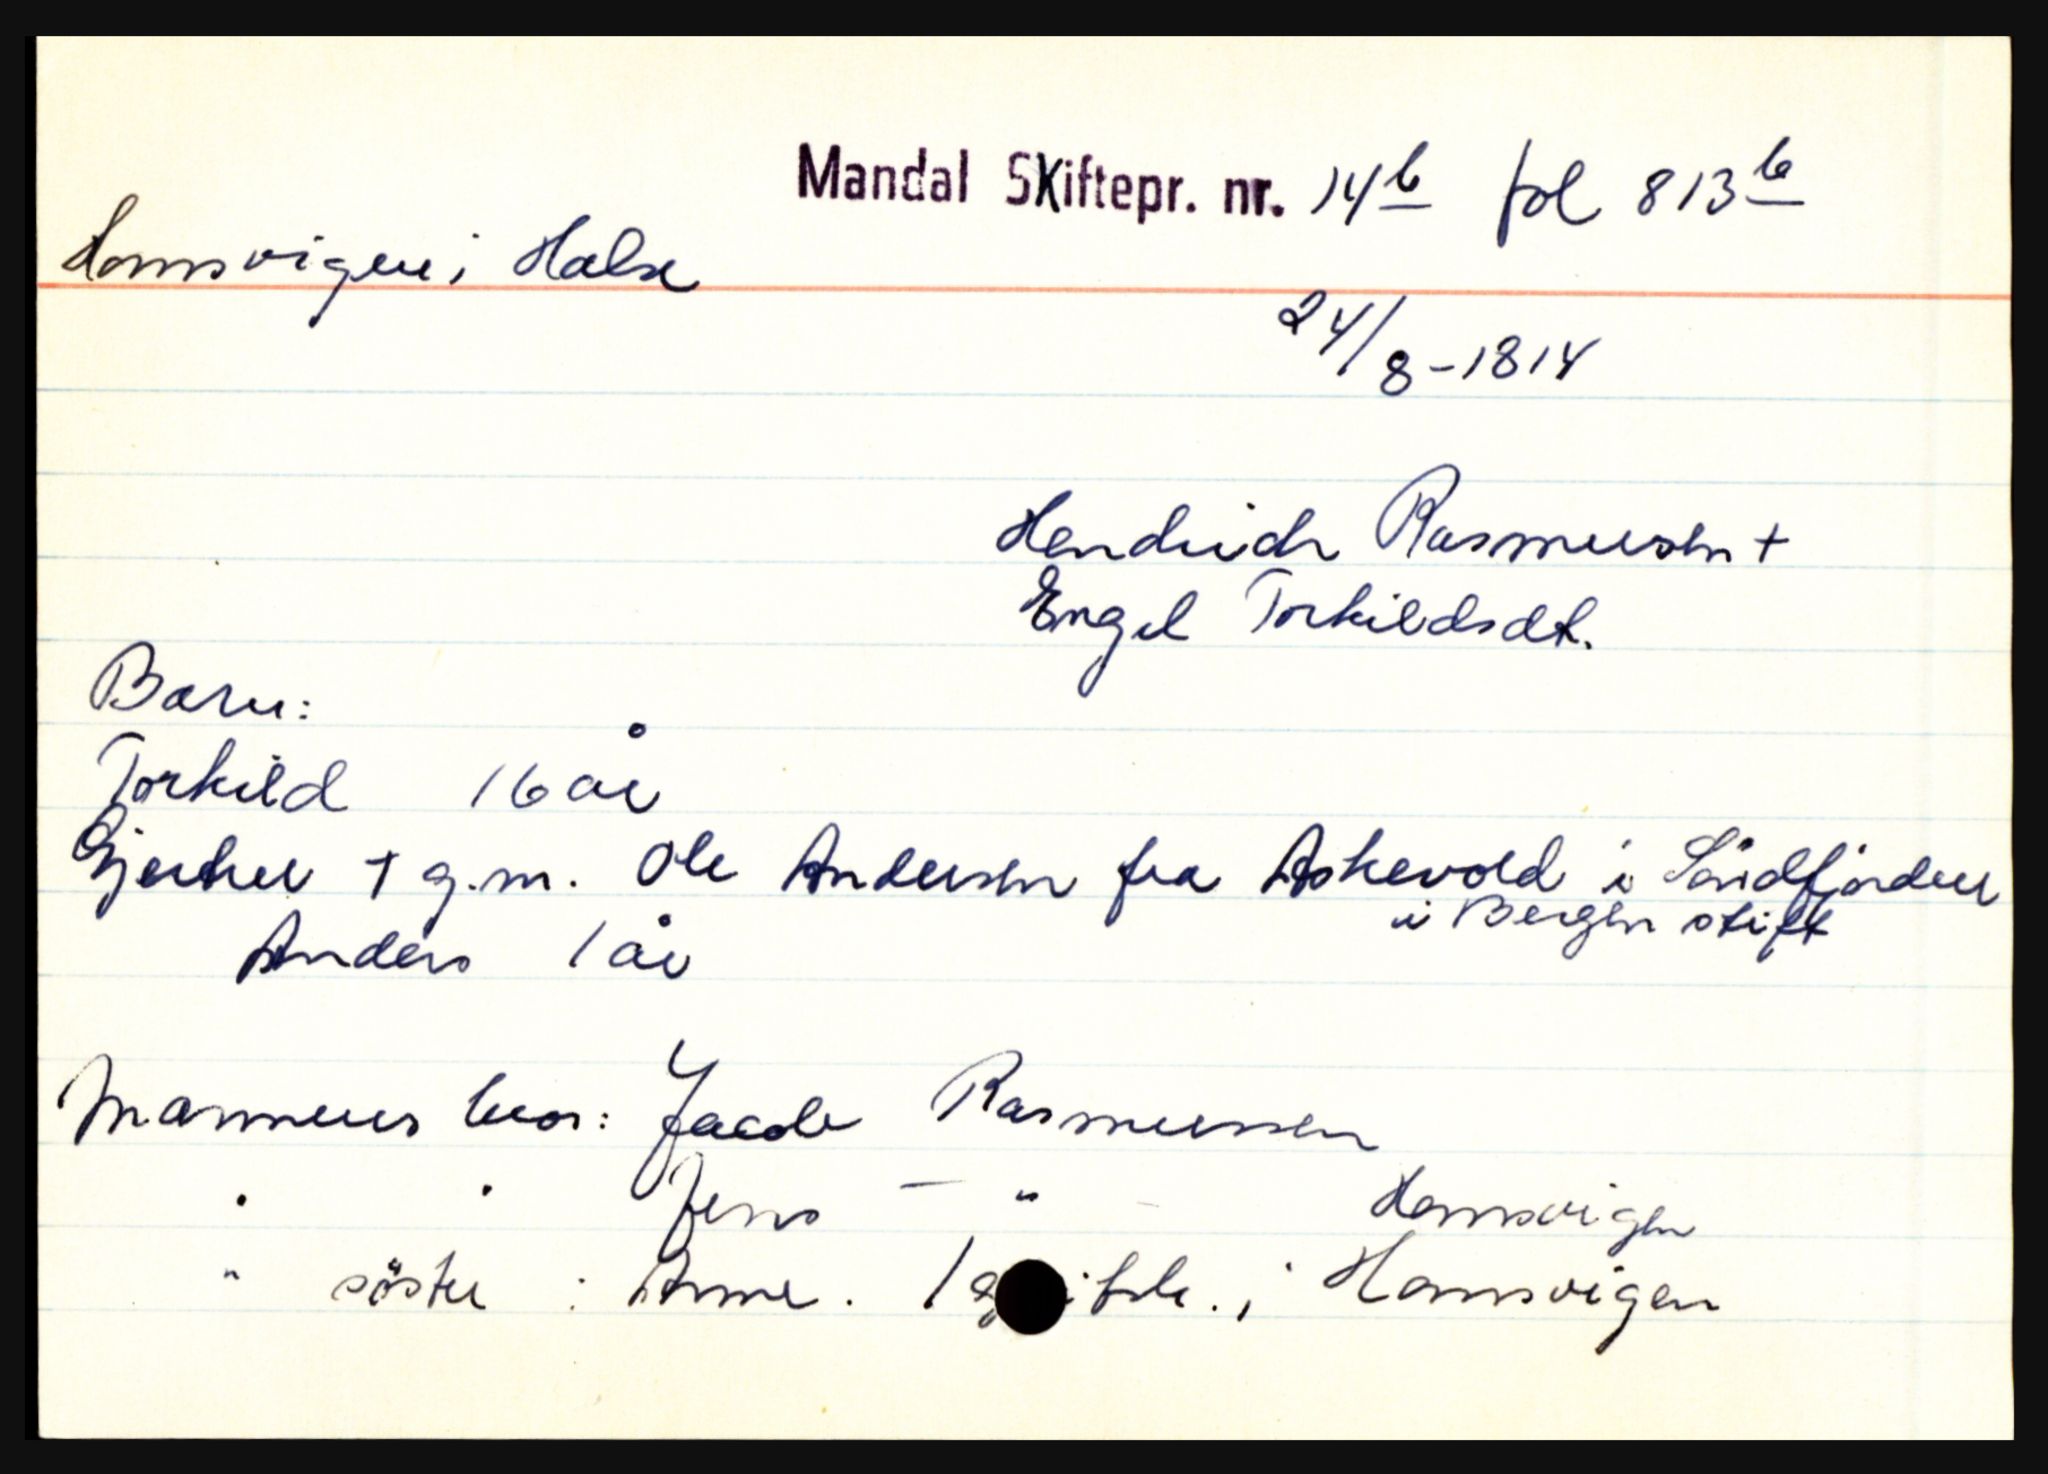 Mandal Skiftepr. nr. 14b fol 813b
Homsvigen i Halse
24/8-1814
Hendrich Rasmussen +
Engel Torkildsdt.
Barn:
Torkild 16 år
Gjerther + g.m. Ole Andersen fra Askevold i Söndfjorden
i Bergen stift
Anders 1 år
Mannens bror: Jacob Rasmussen
" " Jens — " — Homsvigen
" söster : Anne. i Homsvigen